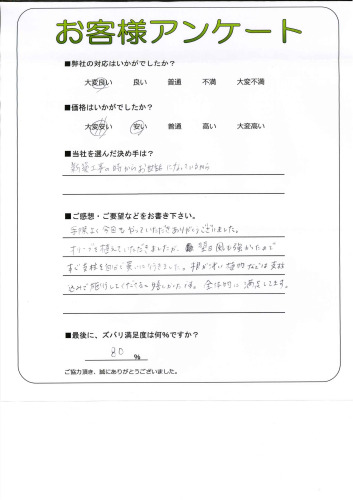 お客様アンケート
■弊社の対応はいかがでしたか？
大変良い　良い　普通　不満　大変不満
■価格はいかがでしたか？
大変安い　安い　普通　高い　大変高い
■当社を選んだ決め手は？
新築工事の時からお世話になっているから
■ご感想・ご要望などをお書き下さい。
手際よく今回もやっていただきありがとうございました。
オリーブを植えていただきましたが、翌日風も強かったので
すぐ支柱を自分で買いに行きました。根が浅い植物などは支柱
込みで施行してくださると嬉しかったです。全体的に満足してます。
■最後に、ズバリ満足度は何％ですか？
80 ％
ご協力頂き、誠にありがとうございました。